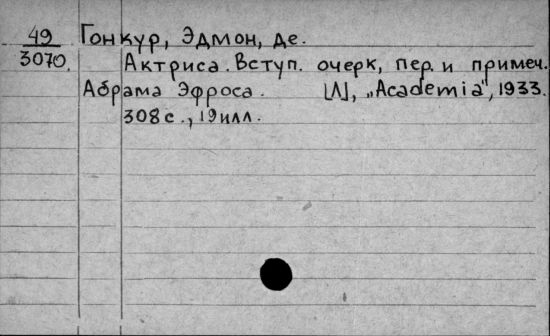 49 Гонкур, Эдмон, де.
3070. Актриса. Вступ. очерк, пер. и примеч.
Абрама Эфроса. [Л], „Academia", 1933.
308 с., 19 илл.